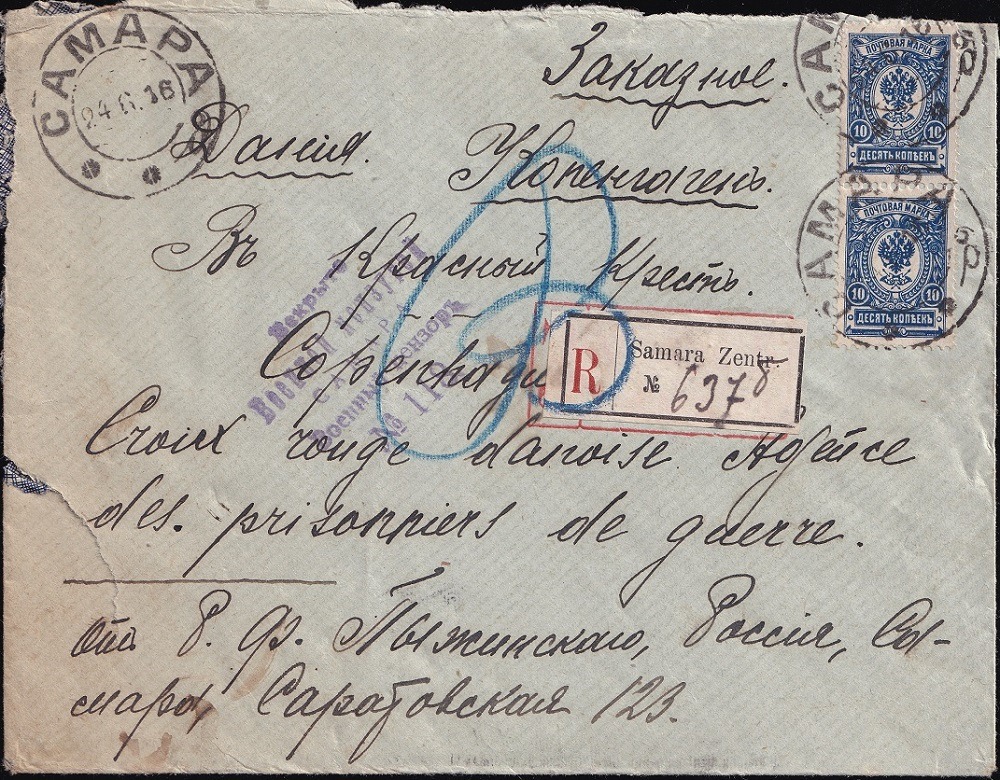 САМАРА
24.6.16
Заказное.
Данiя. Копенгагенъ.
Въ Красный Крестъ.
ПОЧТОВАЯ МАРКА
10 10
ДЕСЯТЬ КОПѢЕКЪ
ПОЧТОВАЯ МАРКА
10 10
ДЕСЯТЬ КОПѢЕКЪ
Вскрыто
Военный Цензоръ
R
Samara Zentr.
№ 6378
Copenhague
Croix rouge danoise Agence
des. prisonniers de guerre.
отъ Р. Ф. Пыжинскаго, Россiя, Са-
мара, Саратовская 123.